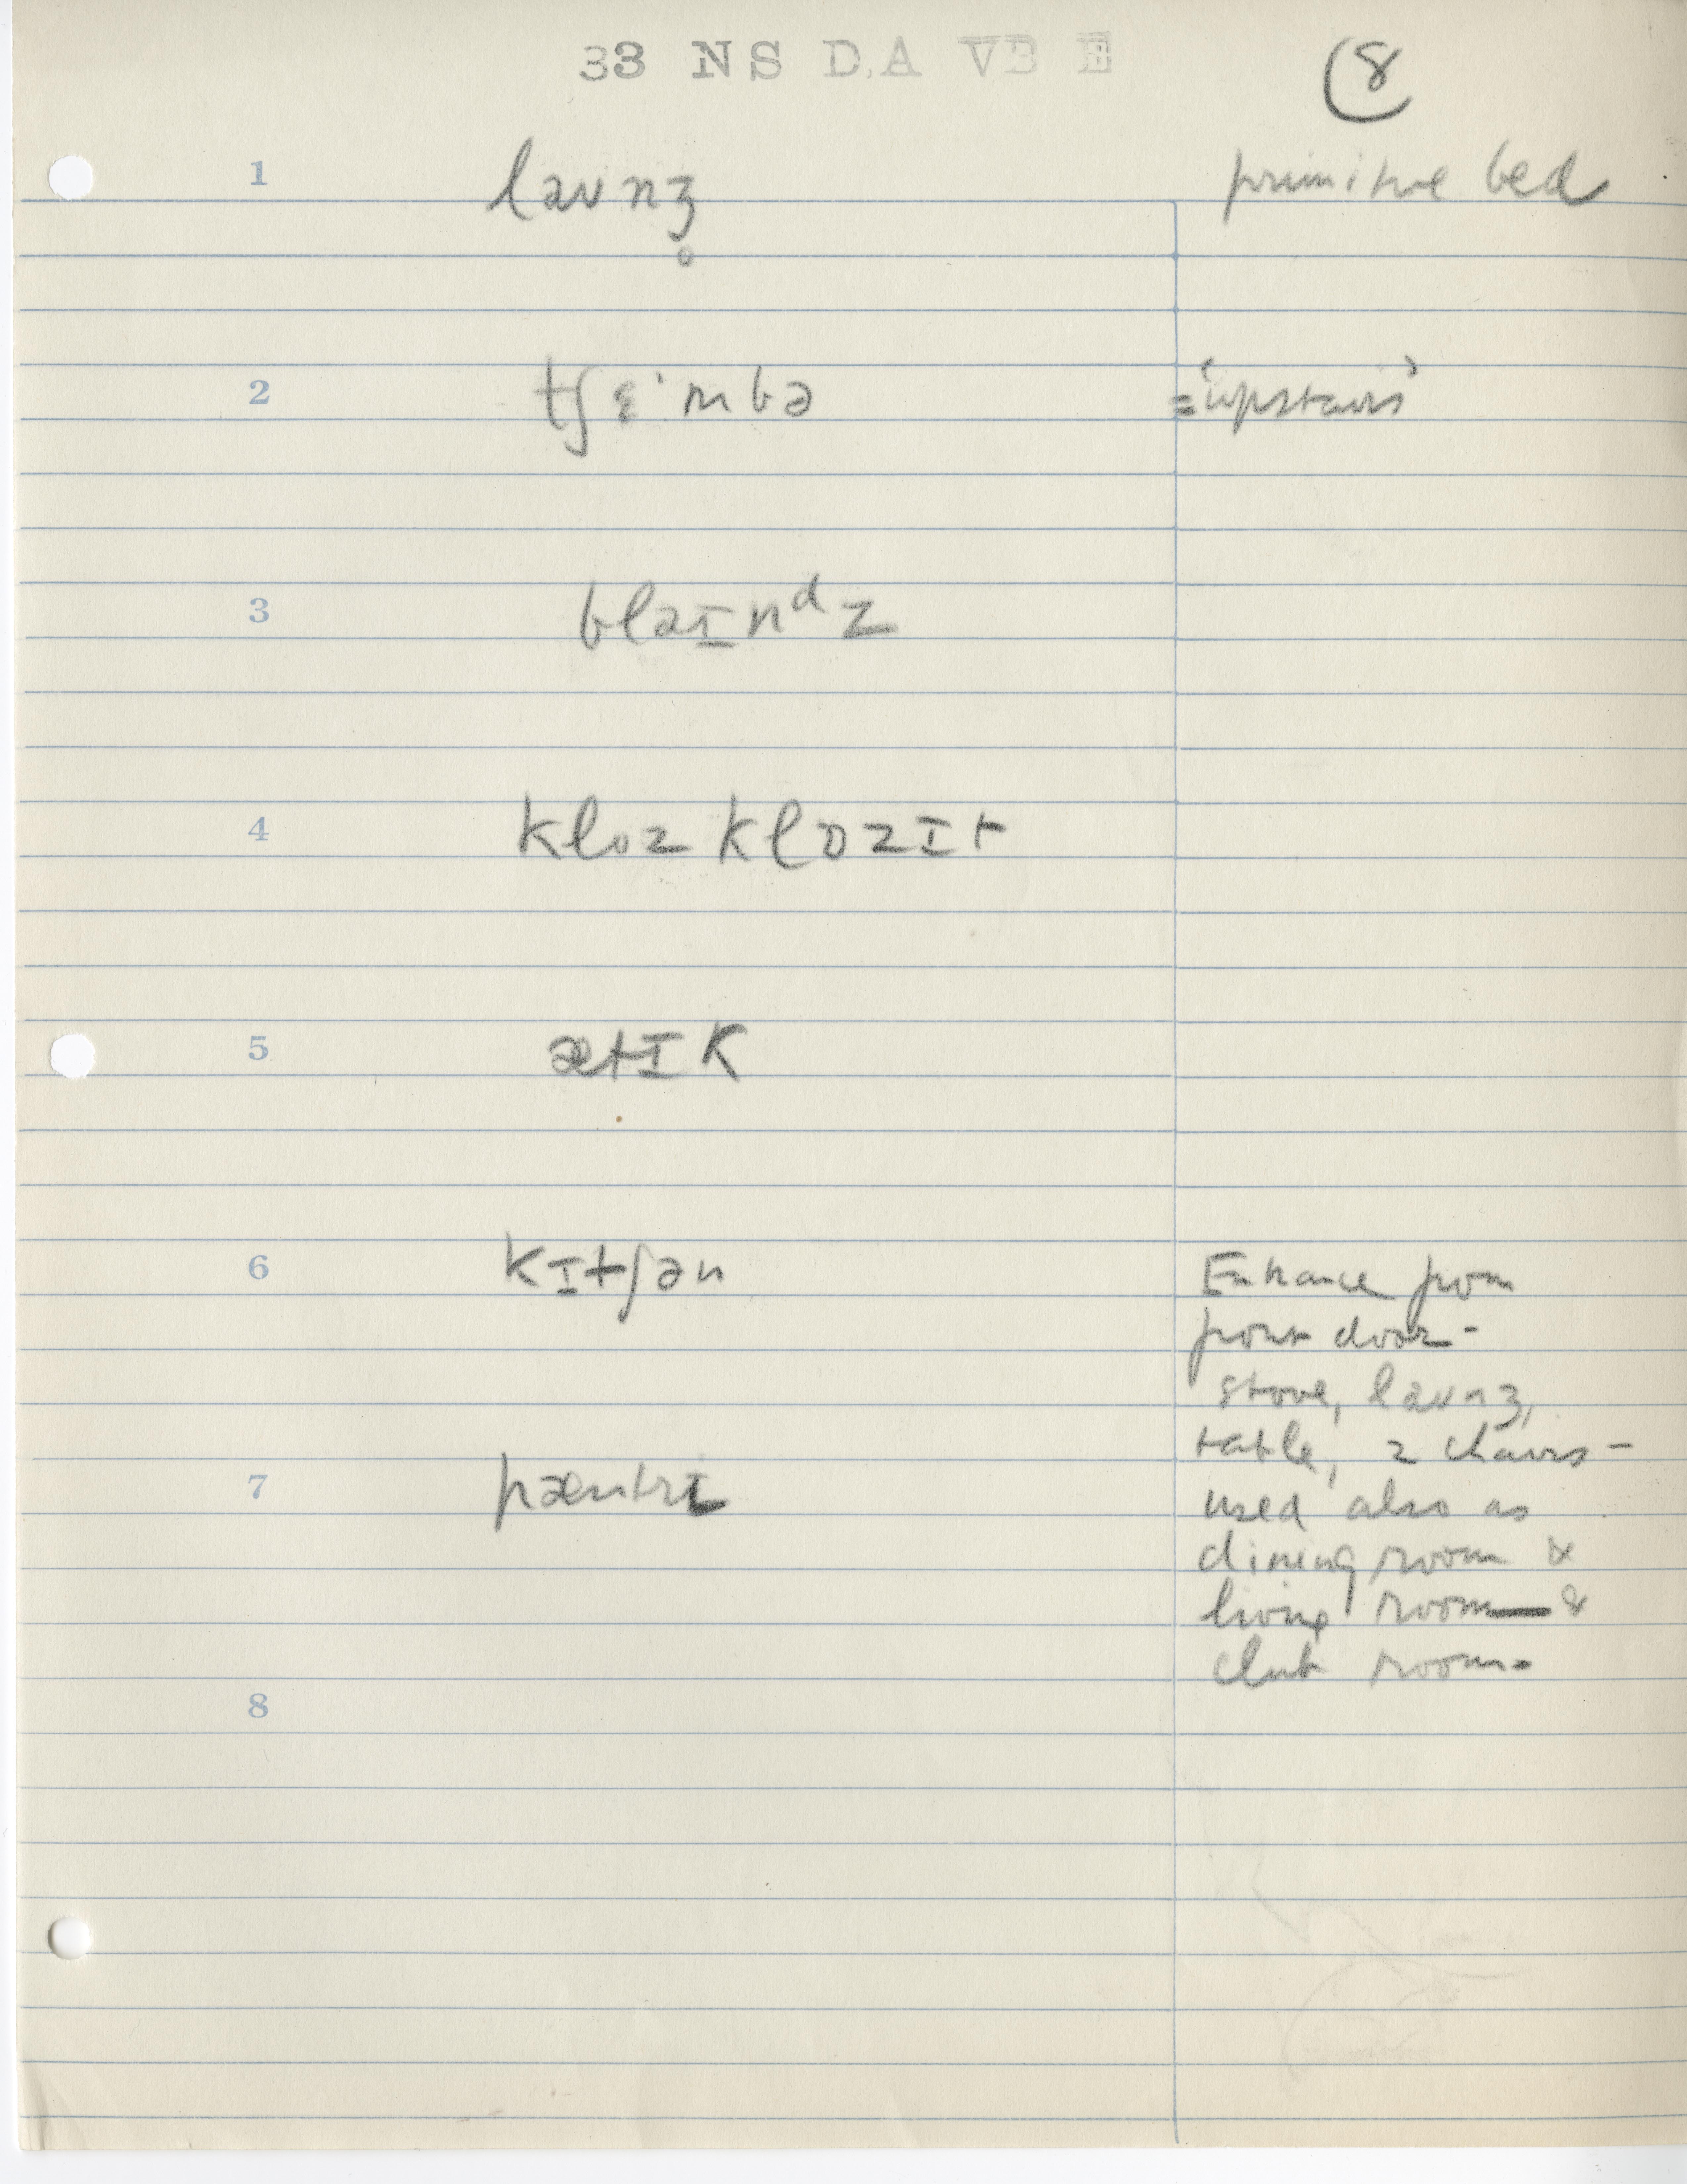 33 NS D.A VB E
8
1 ləʊnʒ̥ primitive bed
2 tʃɛˑmbə ='upstairs'
3 bləɪnᵈz
4 kloz klɒzɪt
5 ætɪk
6 kɪtʃən Entrance from
front door -
stove, ləʊnʒ,
table, 2 chairs -
7 pæntrɪ used also as
dining room &
living room — &
club room.
8